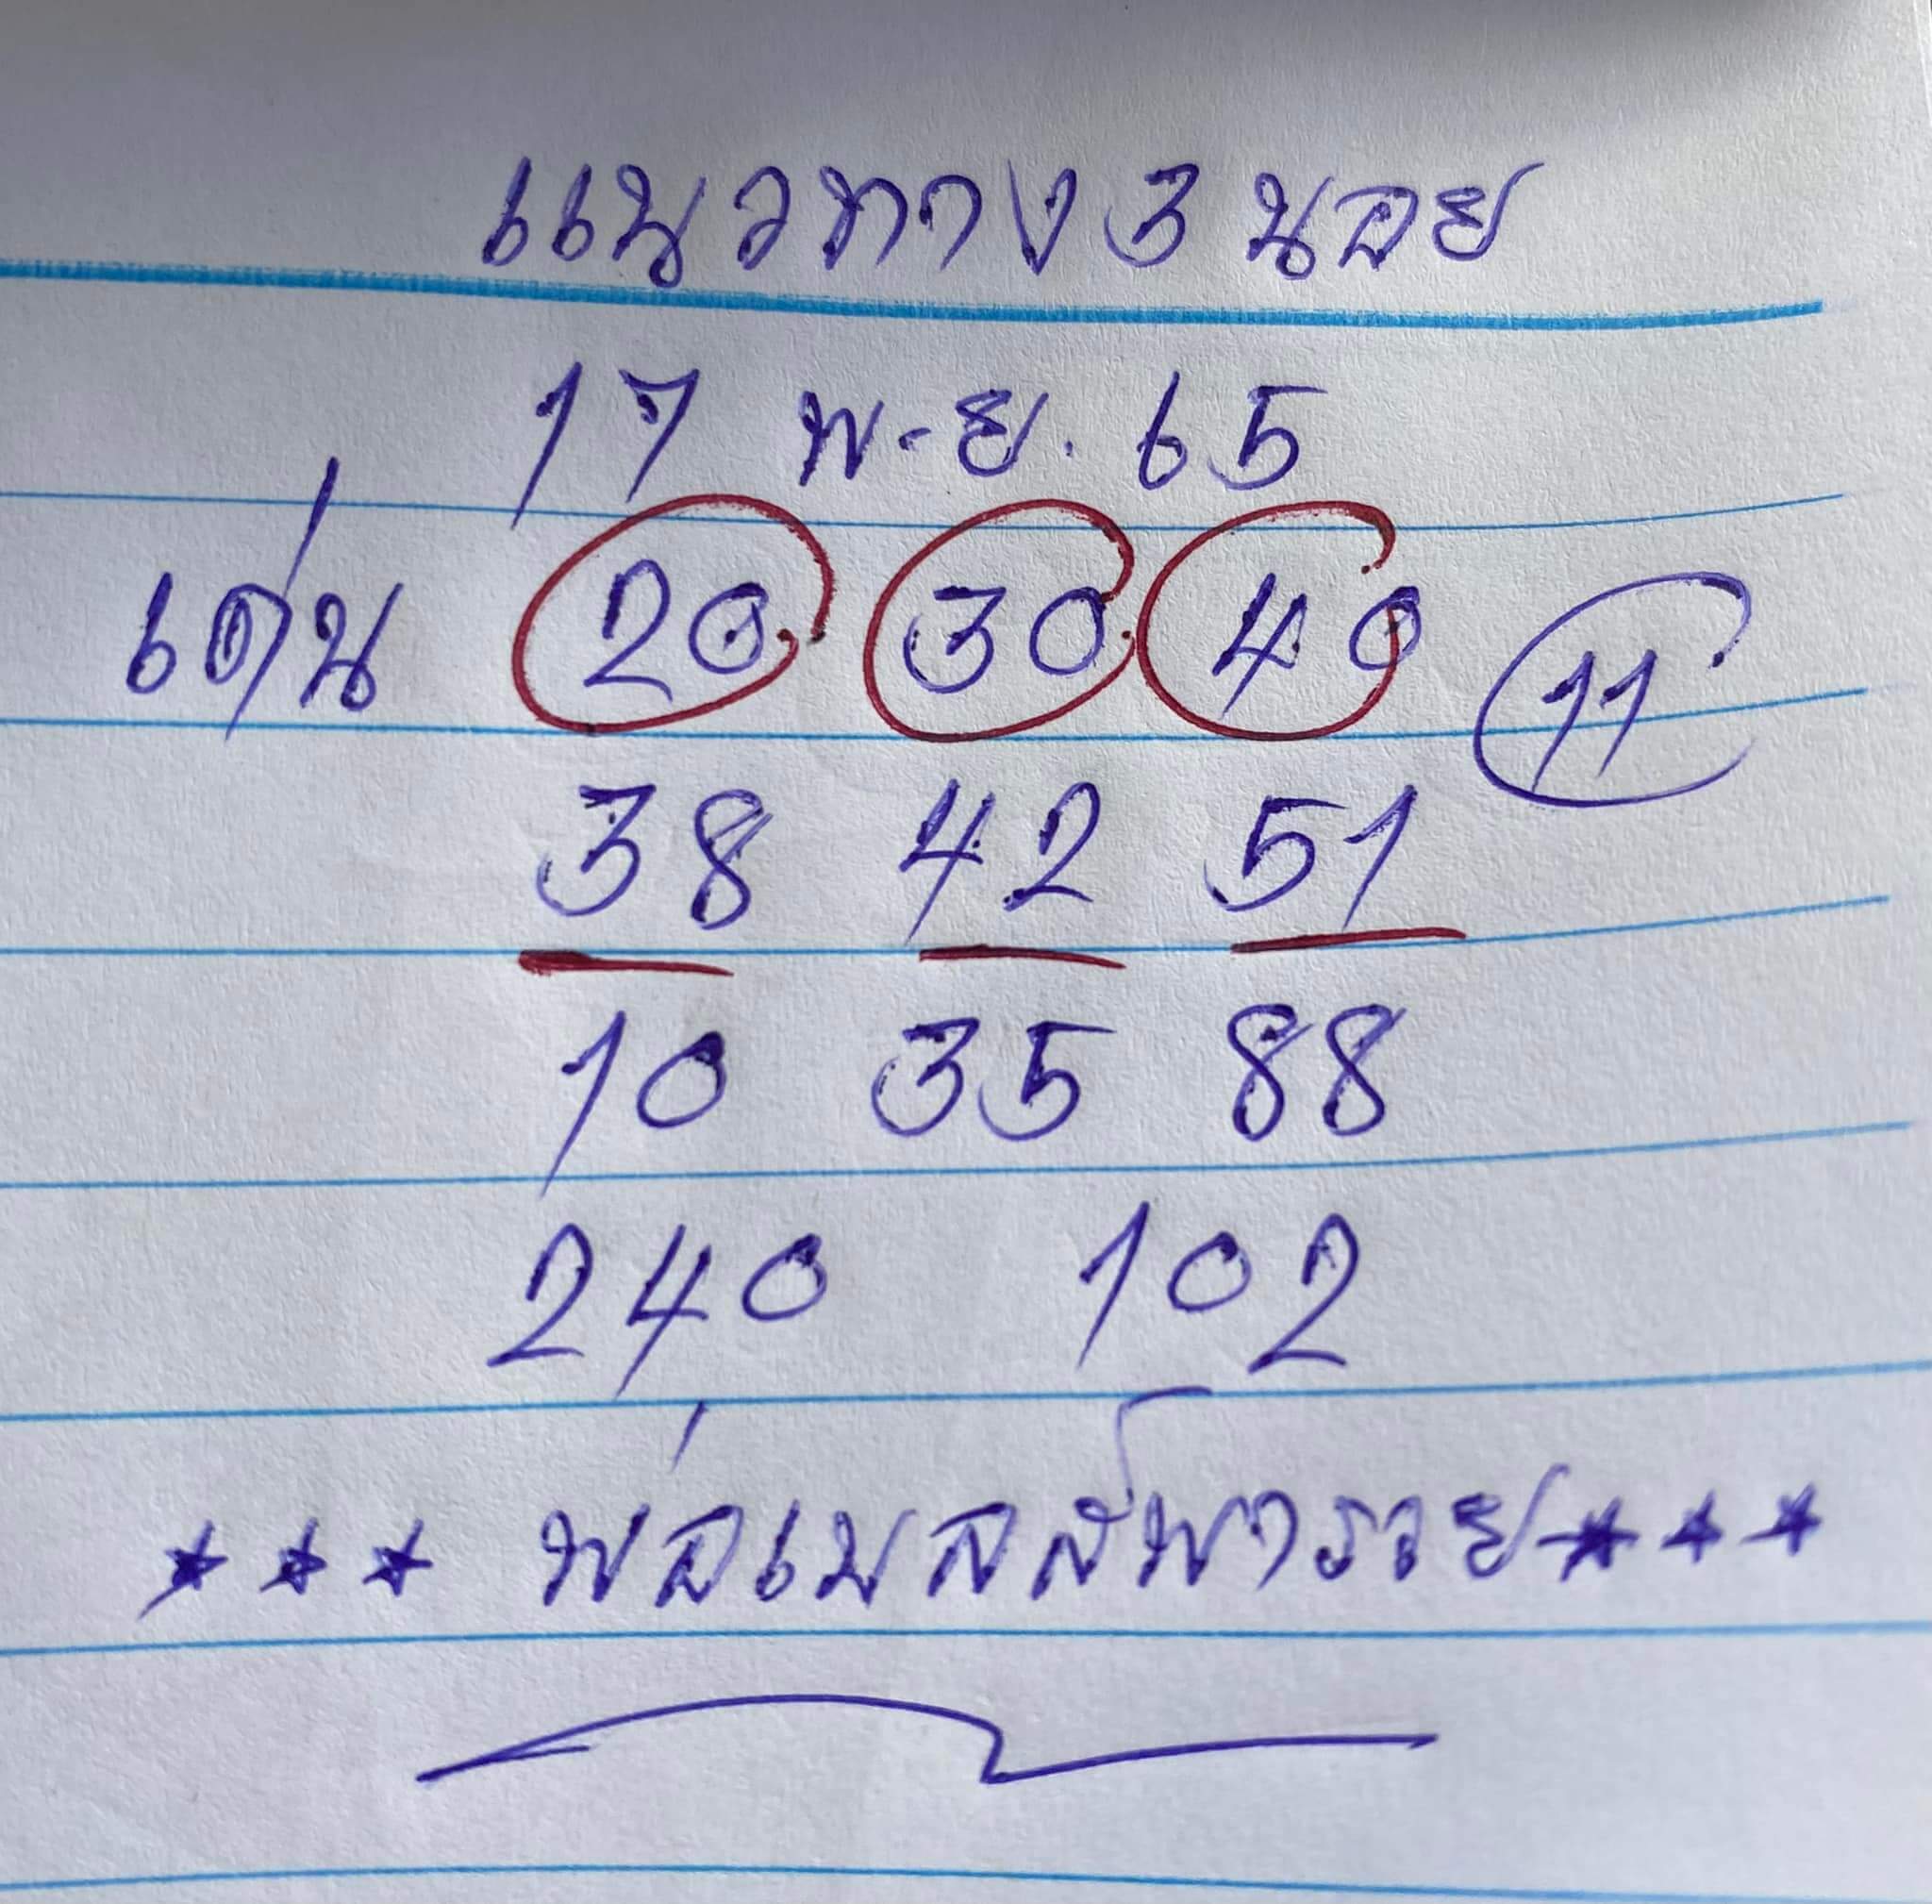 แนวทาง 3 นอย
17 พ.ย. 65
เด่น 20 30 40 11
38 42 51
10 35 88
240 102
*** พ่อเมอส์พารวย ***